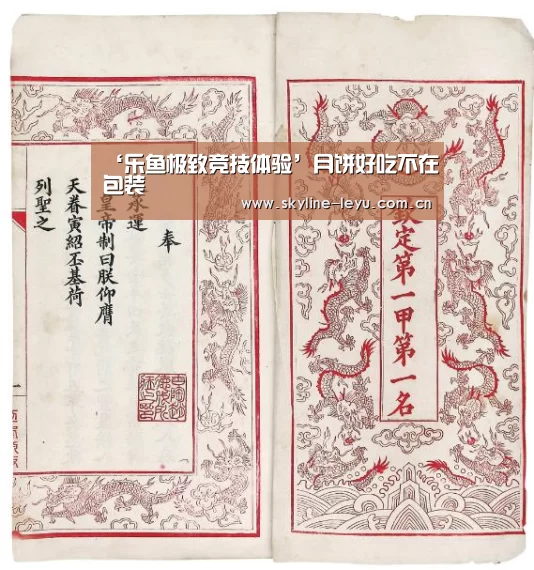 ‘乐鱼极致竞技体验’月饼好吃不在
包装
www.skyline-leyu.com.cn
欽定第一甲第一名
奉
永運
皇帝制曰朕仰膺
天眷寅紹丕基荷
列聖之